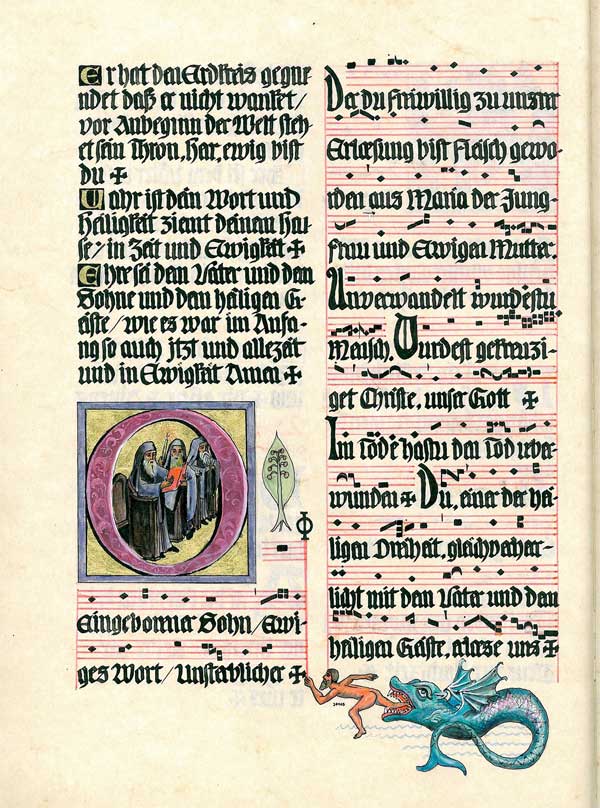 Er hat den Erdkreis gegrün
ndet daß er nicht wanket/
vor Anbeginn der Welt steh
et sein Thron, Har, ewig bist
du +
Wahr ist dein Wort und
Heiligkeit zient deinen Hau
se/in Zeit und Ewigkeit +
Ehre sei dem Vater und dem
Sohne und dem heiligen G
eiste/wie es war im Anfa
ng so auch jtzt und allezeit
und in Ewigkeit Amen +
O
Φ
Eingeborner Sohn/Ewi-
ges Wort/Unstablicher +
Der du freiwillig zu unsrer
Erlœsung bist Fleisch gewo-
rden aus Maria der Jung-
frau und Ewigen Mutter.
Unverwandelt wurdestu
Mensch. Wurdest gekreuzi-
get Christe, unser Gott +
Im Tode hastu den Tod ueber
wunden + Du, einer der hei-
ligen Dreiheit, gleichverher-
licht mit dem Vater und dem
heiligen Geiste, erlœse uns +